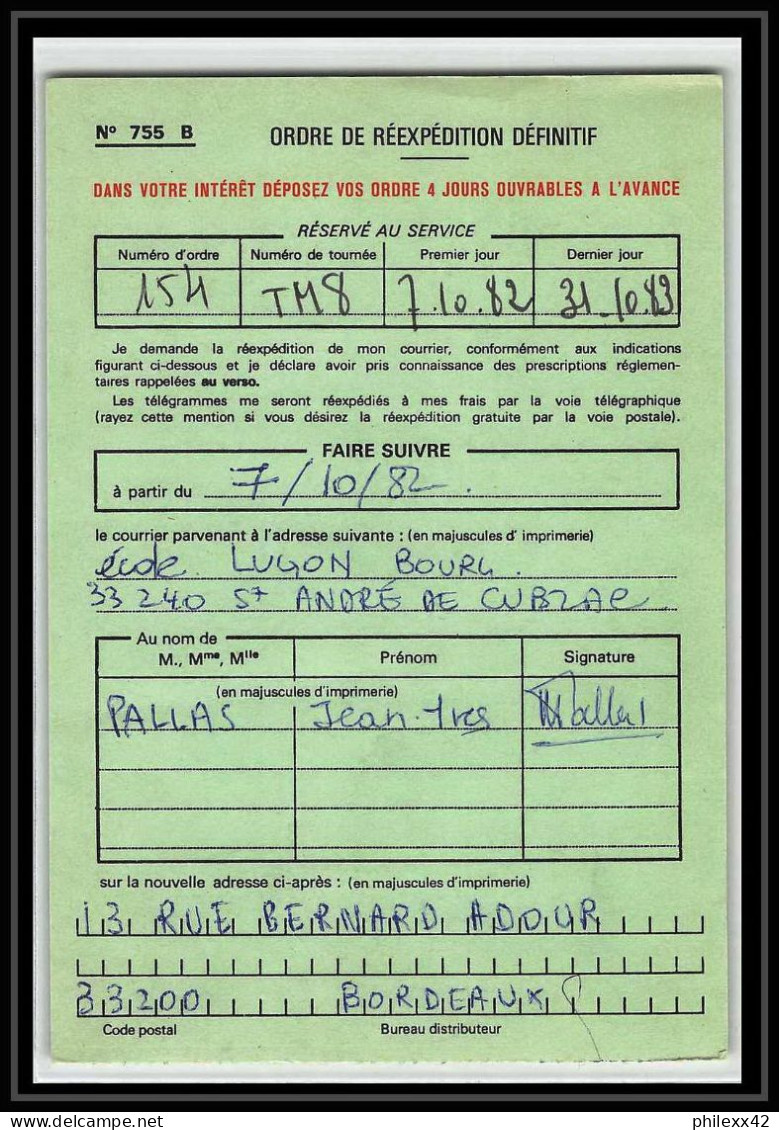 N° 755 B
ORDRE DE RÉEXPÉDITION DÉFINITIF
DANS VOTRE INTÉRÊT DÉPOSEZ VOS ORDRE 4 JOURS OUVRABLES A L'AVANCE
RÉSERVÉ AU SERVICE
Numéro d'ordre Numéro de tournée Premier jour Dernier jour
154 TM8 7.10.82 31-10.83
Je demande la réexpédition de mon courrier, conformément aux indications
figurant ci-dessous et je déclare avoir pris connaissance des prescriptions réglemen-
taires rappelées au verso.
Les télégrammes me seront réexpédiés à mes frais par la voie télégraphique
(rayez cette mention si vous désirez la réexpédition gratuite par la voie postale).
FAIRE SUIVRE
à partir du 7/10/82.
le courrier parvenant à l'adresse suivante : (en majuscules d'imprimerie)
école LUGON BOURG.
33240 St ANDRÉ DE CUBZAC
Au nom de
M., Mme, Mlle Prénom Signature
(en majuscules d'imprimerie)
PALLAS Jean-Yves Pallas
sur la nouvelle adresse ci-après : (en majuscules d'imprimerie)
13 RUE BERNARD ADOUR
33200 BORDEAUX
Code postal Bureau distributeur
delcampe.net
philexx42